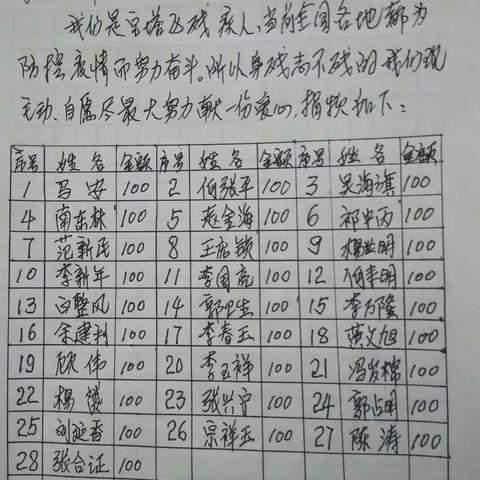 我们是宝塔区残疾人,当前全国各地都为
防控疫情而努力奋斗。所以身残志不残的我们现
主动、自愿尽最大努力献一份爱心,捐款如下:
序号 姓名 金额 序号 姓名 金额 序号 姓名 金额
1 马安 100 2 伯张平 100 3 吴海旗 100
4 南东林 100 5 赵金海 100 6 祁中丙 100
7 范新民 100 8 王启锁 100 9 杨世明 100
10 李新年 100 11 李国亮 100 12 100
13 白整风 100 14 郭卫生 100 15 李万隆 100
16 余建利 100 17 李春玉 100 18 黄文旭 100
19 伟 100 20 李玉祥 100 21 冯发棉 100
22 杨 100 23 张兴宁 100 24 郭占明 100
25 刘延香 100 26 宗祥玉 100 27 陈涛 100
28 张合证 100